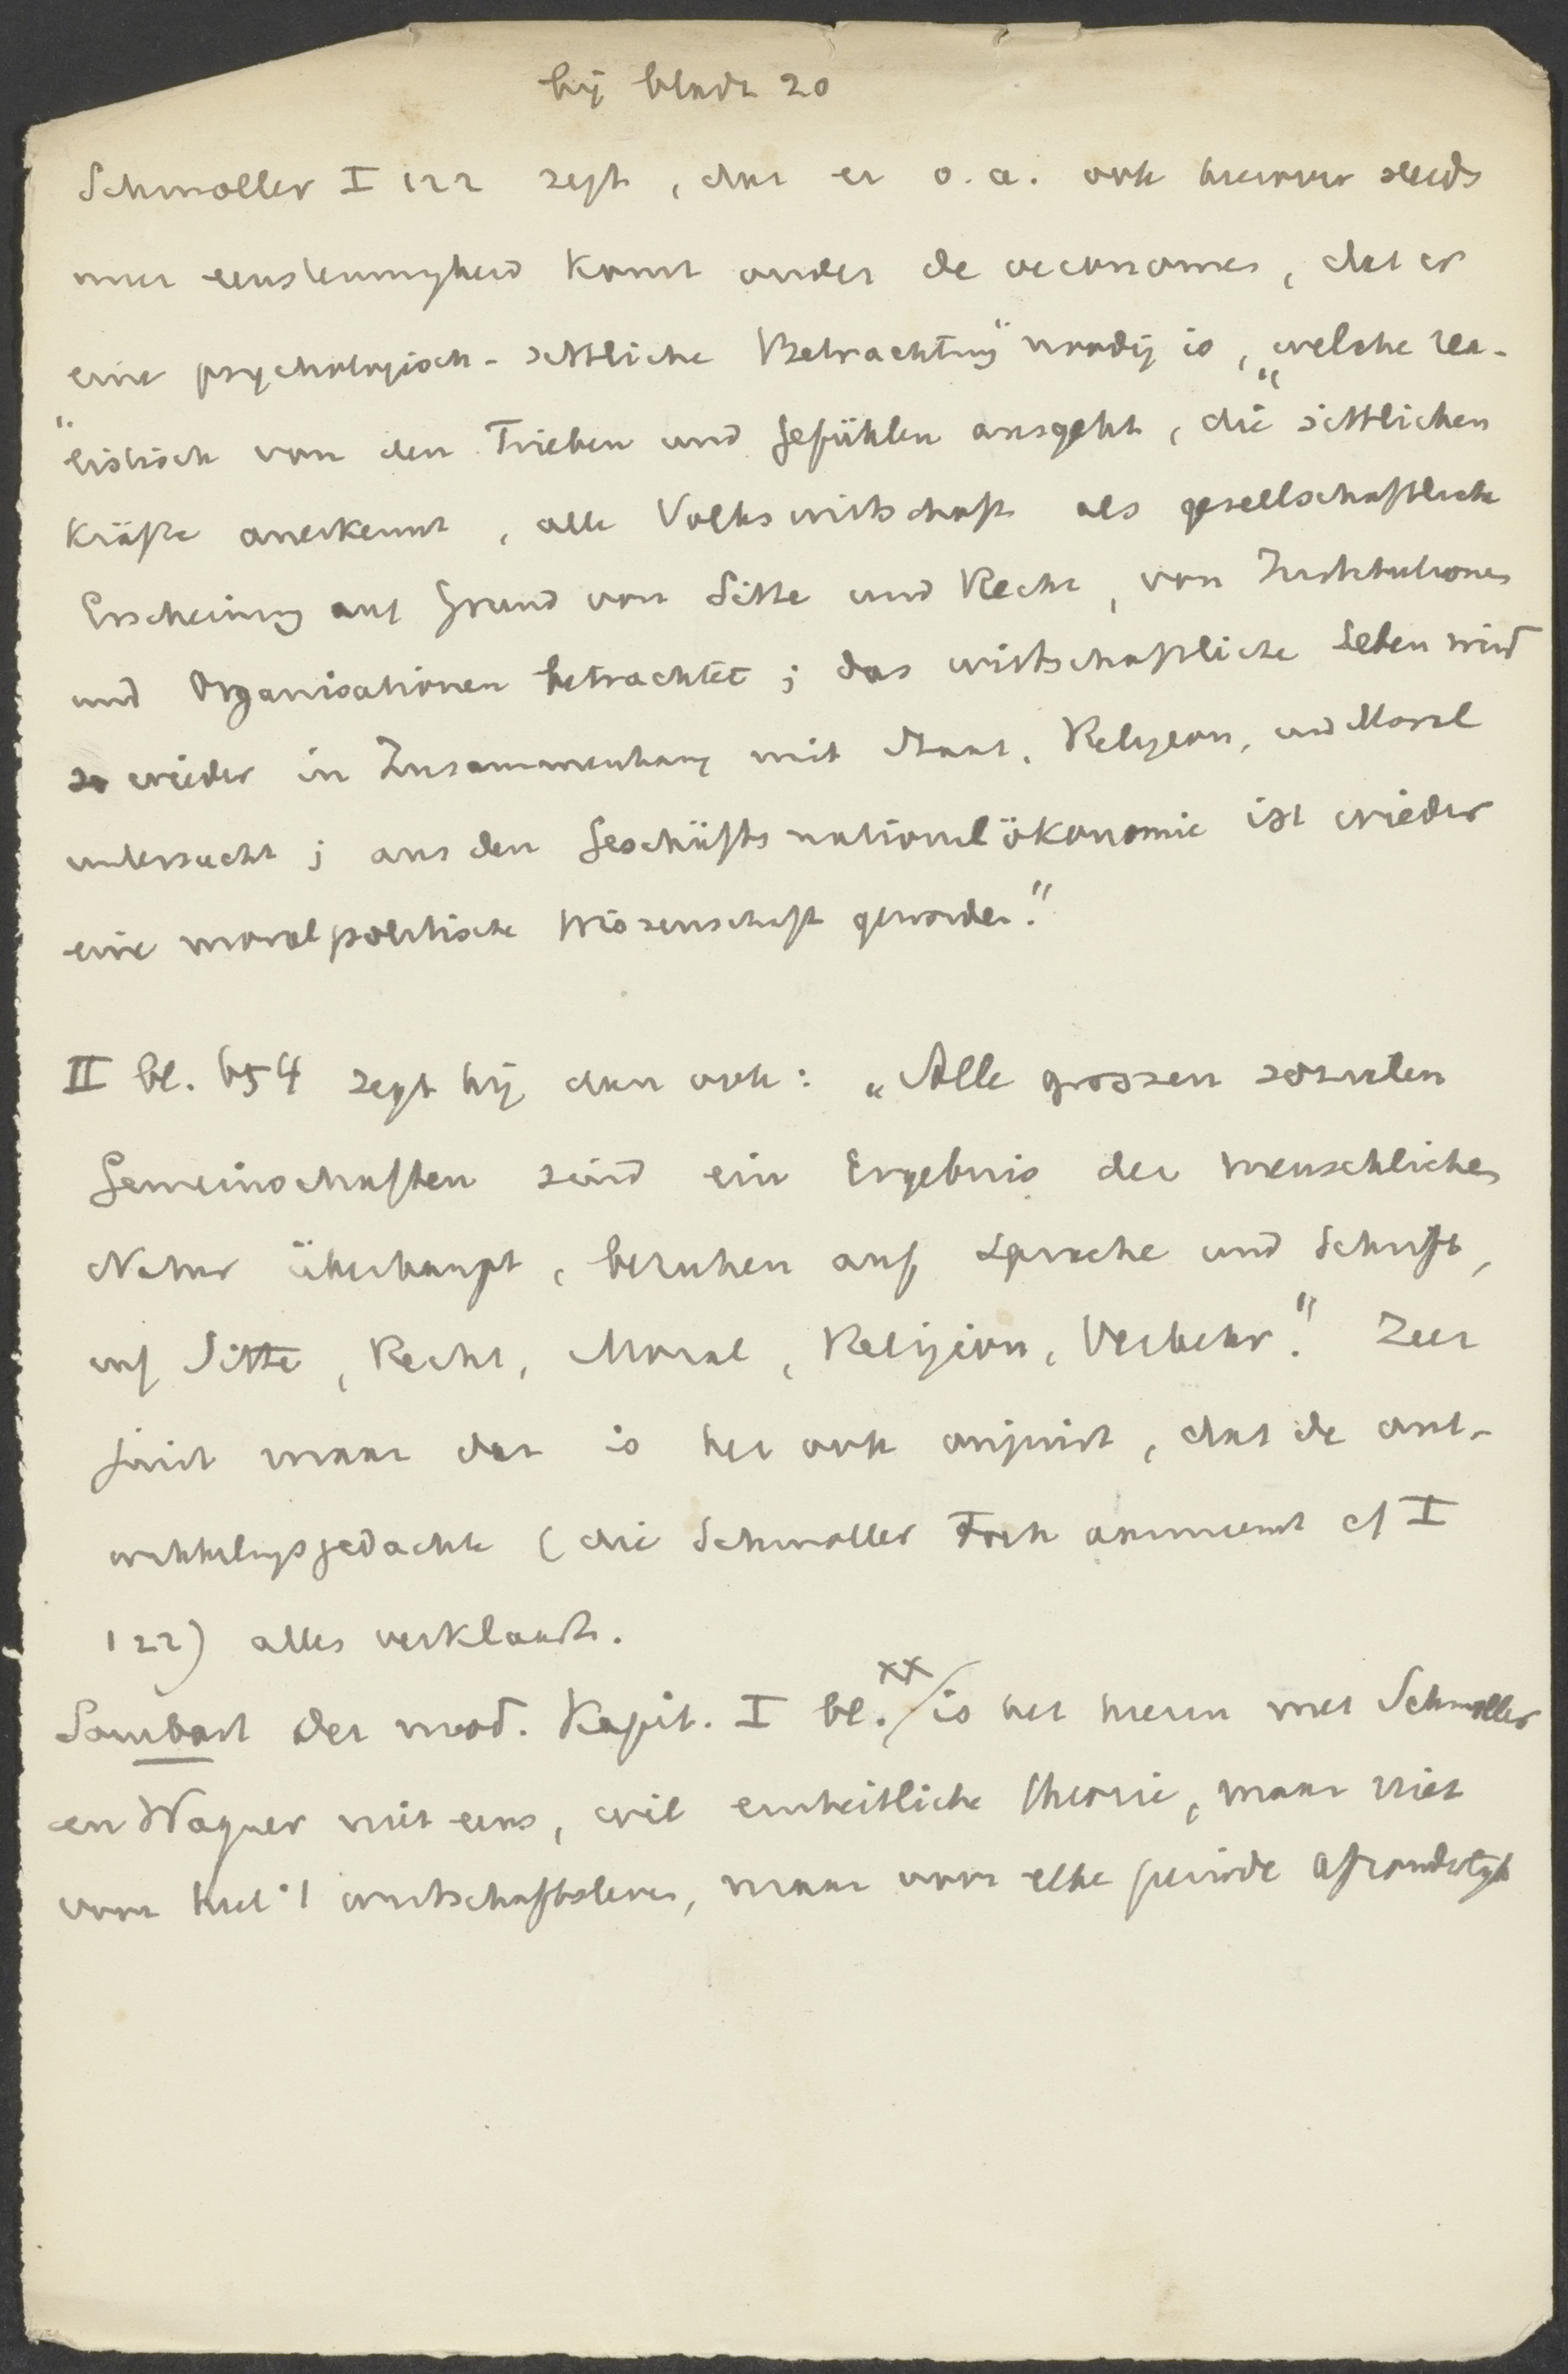 bij bladz 20
Schmoller I 122 zegt, dat er o.a. ook hierover steeds
meer eenstemmigheid komt onder de oeconomen, dat er
eine psychologisch-sittliche Betrachtung" noodig is, „welche rea-
"listisch von den Trieben und Gefühlen ausgeht, die sittlichen
Kräfte anerkennt, alle Volkswirtschaft als gesellschaftliche
Erscheinung auf Grund von Sitte und Recht, von Institutionen
und Organisationen betrachtet; das wirtschaftliche Leben wird
so wieder in Zusammenhang mit Staat, Religion, und Moral
untersucht; aus der Geschäftsnationalökonomie ist wieder
eine moralpolitische Wissenschaft geworden."
II bl. 654 zegt hij dan ook: „Alle grossen sozialen
Gemeinschaften sind ein Ergebnis der menschlichen
Natur überhaupt, beruhen auf Sprache und Schrift,
auf Sitte, Recht, Moral, Religion, Verkehr." Zeer
juist maar dan is het ook onjuist, dat de ont-
wikkelingsgedachte (die Schmoller toch aanneemt cf I
122) alles verklaart.
Sombart der mod. Kapit. I bl. xx is het hierin met Schmoller
en Wagner niet eens, wil einheitliche Theorie, maar niet
voor heel 't wirtschaftsleven, maar voor elke periode afzonderlijk